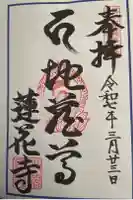 奉拝
令和七年三月廿三日
地蔵尊
蓮花寺